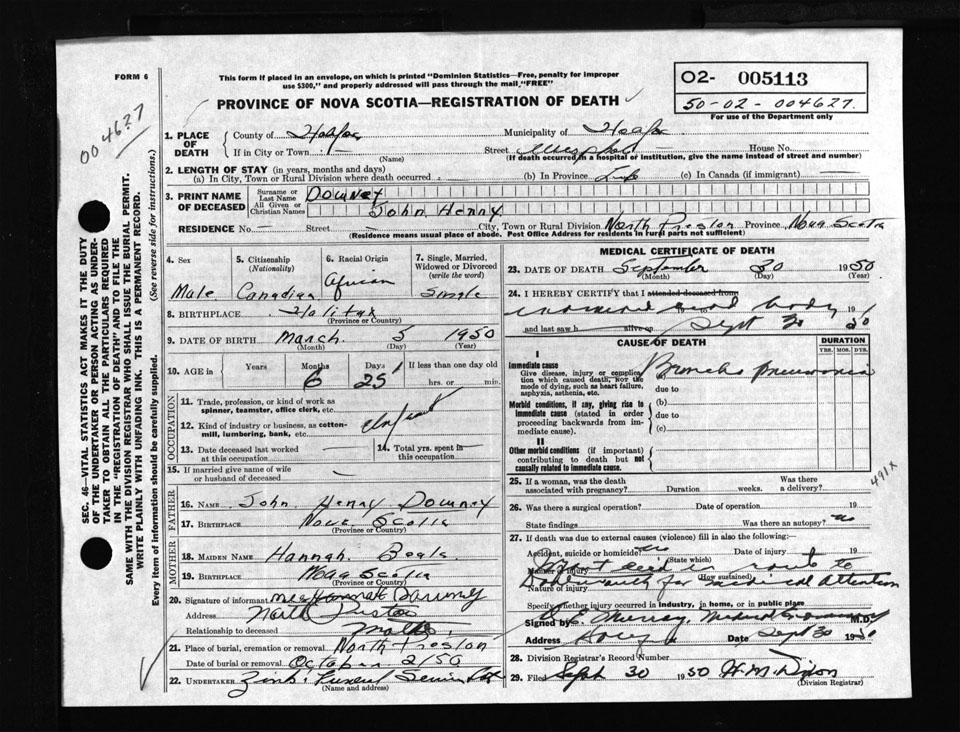 FORM 6
This form if placed in an envelope, on which is printed "Dominion Statistics—Free, penalty for improper
use $300," and properly addressed will pass through the mail, "FREE"
PROVINCE OF NOVA SCOTIA—REGISTRATION OF DEATH
02- 005113
50-02-004627.
For use of the Department only
00 4627
SEC. 46—VITAL STATISTICS ACT MAKES IT THE DUTY
OF THE UNDERTAKER OR PERSON ACTING AS UNDER-
TAKER TO OBTAIN ALL THE PARTICULARS REQUIRED
IN THE "REGISTRATION OF DEATH" AND TO FILE THE
SAME WITH THE DIVISION REGISTRAR WHO SHALL ISSUE THE BURIAL PERMIT.
WRITE PLAINLY WITH UNFADING INK. THIS IS A PERMANENT RECORD.
Every item of information should be carefully supplied. (See reverse side for instructions.)
1. PLACE OF DEATH
County of Halifax Municipality of Halifax
If in City or Town — (Name) Street House No.—
(If death occurred in a hospital or institution, give the name instead of street and number)
2. LENGTH OF STAY (in years, months and days)
(a) In City, Town or Rural Division where death occurred (b) In Province Life (c) In Canada (if immigrant) —
3. PRINT NAME OF DECEASED
Surname or Last Name Downey
All Given or Christian Names John Henry
RESIDENCE No.— Street — City, Town or Rural Division North Preston Province Nova Scotia
(Residence means usual place of abode. Post Office Address for residents in rural parts not sufficient)
4. Sex Male
5. Citizenship (Nationality) Canadian
6. Racial Origin African
7. Single, Married, Widowed or Divorced (write the word) Single
8. BIRTHPLACE Halifax
(Province or Country)
9. DATE OF BIRTH March 5 1950
(Month) (Day) (Year)
10. AGE in Years Months 6 Days 25 If less than one day old
hrs. or min.
OCCUPATION
11. Trade, profession, or kind of work as
spinner, teamster, office clerk, etc. Infant
12. Kind of industry or business, as cotton-
mill, lumbering, bank, etc.
13. Date deceased last worked at this occupation —
14. Total yrs. spent in this occupation —
15. If married give name of wife
or husband of deceased —
FATHER
16. NAME John Henry Downey
17. BIRTHPLACE Nova Scotia
(Province or Country)
MOTHER
18. MAIDEN NAME Hannah Beals
19. BIRTHPLACE Nova Scotia
(Province or Country)
20. Signature of informant Mrs Hannah Downey
Address North Preston
Relationship to deceased Mother
21. Place of burial, cremation or removal North Preston
Date of burial or removal October 2/50
22. UNDERTAKER Zink Funeral Service
(Name and address)
MEDICAL CERTIFICATE OF DEATH
23. DATE OF DEATH September 30 1950
(Month) (Day) (Year)
24. I HEREBY CERTIFY that I attended deceased from
examined dead body 19
and last saw h alive on Sept 30 1950
CAUSE OF DEATH
DURATION
YRS. MOS. DYS.
I
Immediate cause
Give disease, injury or complica-
tion which caused death, NOT the
mode of dying, such as heart failure,
asphyxia, asthenia, etc.
(a) Broncho pneumonia
due to
Morbid conditions, if any, giving rise to
immediate cause (stated in order
proceeding backwards from im-
mediate cause).
(b)
due to
(c)
II
Other morbid conditions (if important)
contributing to death but not
causally related to immediate cause.
491X
25. If a woman, was the death
associated with pregnancy? Duration weeks. Was there a delivery?
26. Was there a surgical operation? Date of operation 19
State findings Was there an autopsy? no
27. If death was due to external causes (violence) fill in also the following:—
Accident, suicide or homicide? no Date of injury 19
(State which)
Manner of injury died en route to
(How sustained)
Nature of injury Dartmouth for medical attention
Specify whether injury occurred in industry, in home, or in public place
Signed by Murray, Medical Examiner M.D.
Address Date Sept 30 1950
28. Division Registrar's Record Number
29. Filed Sept 30 1950 H. M. Dixon
(Division Registrar)